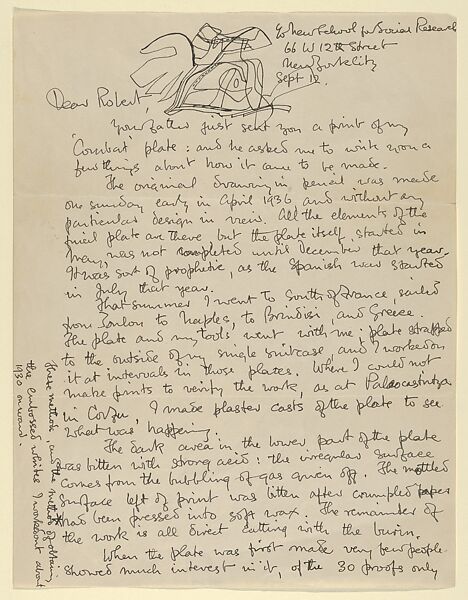 c/o New School for Social Research
66 W 12th Street
New York City
Sept 12.
Dear Robert,
Your father just sent you a print of my
'Combat' plate: and he asked me to write you a
few things about how it came to be made.
The original drawing in pencil was made
one sunday early in April 1936 and without any
particular design in view. All the elements of the
final plate are there but the plate itself, started in
May, was not completed until December that year.
It was sort of prophetic, as the Spanish war started
in July that year.
That summer I went to South of France, sailed
from Toulon to Naples, to Brindisi and Greece.
The plate and my tools went with me; plate strapped
to the outside of my single suitcase and I worked on
it at intervals in those places. Where I could not
make prints to verify the work, as at Paleocastritza
in Corfu, I made plaster casts of the plate to see
what was happening.
The dark area in the lower part of the plate
was bitten with strong acid: the irregular surface
comes from the bubbling of gas given off. The mottled
surface left of print was bitten after crumpled paper
had been pressed into soft wax. The remainder of
the work is all direct cutting with the burin.
When the plate was first made very few people
showed much interest in it, of the 30 proofs only
These methods, and the method of obtaining
the embossed whites I worked out about
1930 onward.